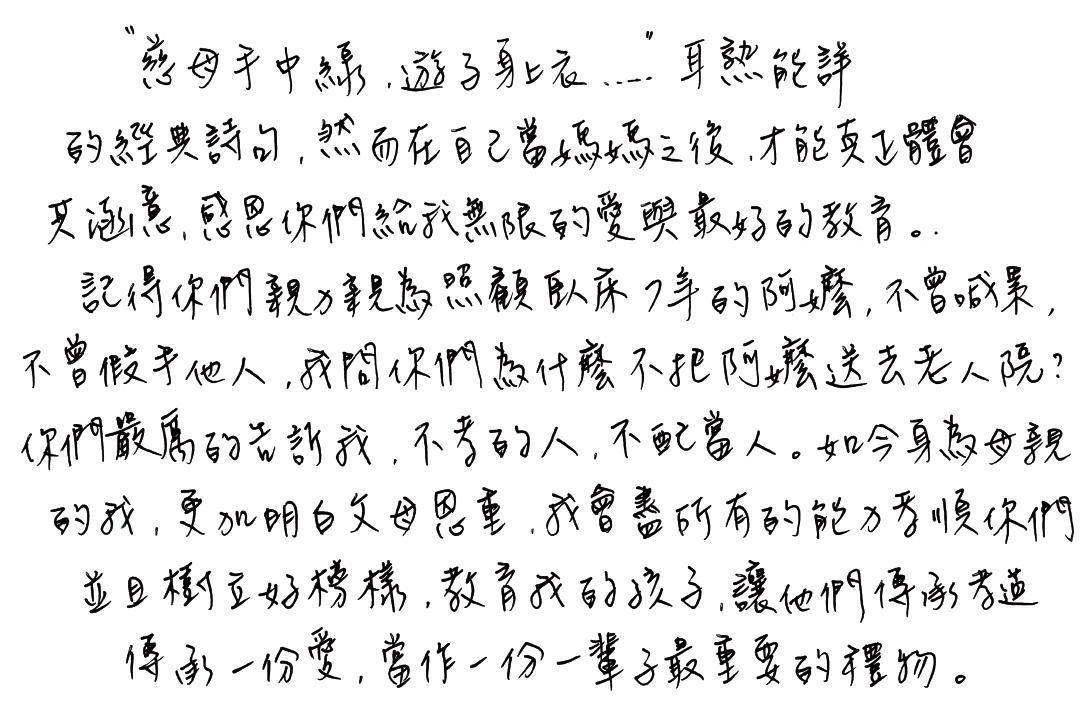 "慈母手中線,遊子身上衣....."耳熟能詳
的經典詩句,然而在自己當媽媽之後,才能真正體會
其涵意,感恩你們給我無限的愛與最好的教育。.
記得你們親力親為照顧臥床7年的阿嬤,不曾喊累,
不曾假手他人,我問你們為什麼不把阿嬤送去老人院?
你們嚴厲的告訴我,不孝的人,不配當人。如今身為母親
的我,更加明白父母恩重,我會盡所有的能力孝順你們
並且樹立好榜樣,教育我的孩子,讓他們傳承孝道
傳承一份愛,當作一份一輩子最重要的禮物。